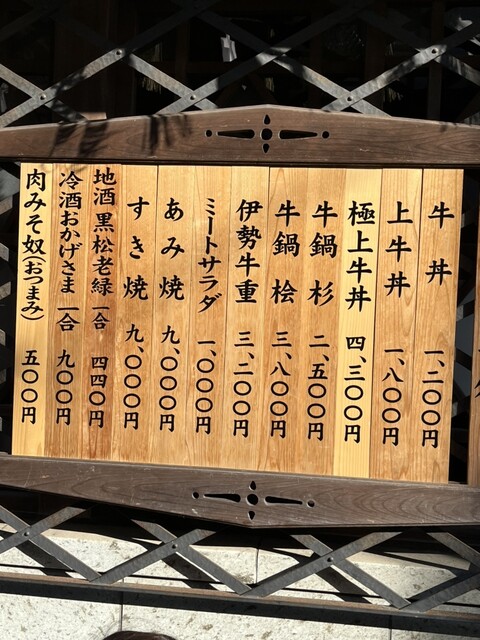 牛丼 一、二〇〇円
上牛丼 一、八〇〇円
極上牛丼 四、三〇〇円
牛鍋 杉 二、五〇〇円
牛鍋 桧 三、八〇〇円
伊勢牛重 三、二〇〇円
ミートサラダ 一、〇〇〇円
あみ焼 九、〇〇〇円
すき焼 九、〇〇〇円
地酒 黒松老緑 一合 四四〇円
冷酒おかげさま 一合 九〇〇円
肉みそ奴(おつまみ) 五〇〇円